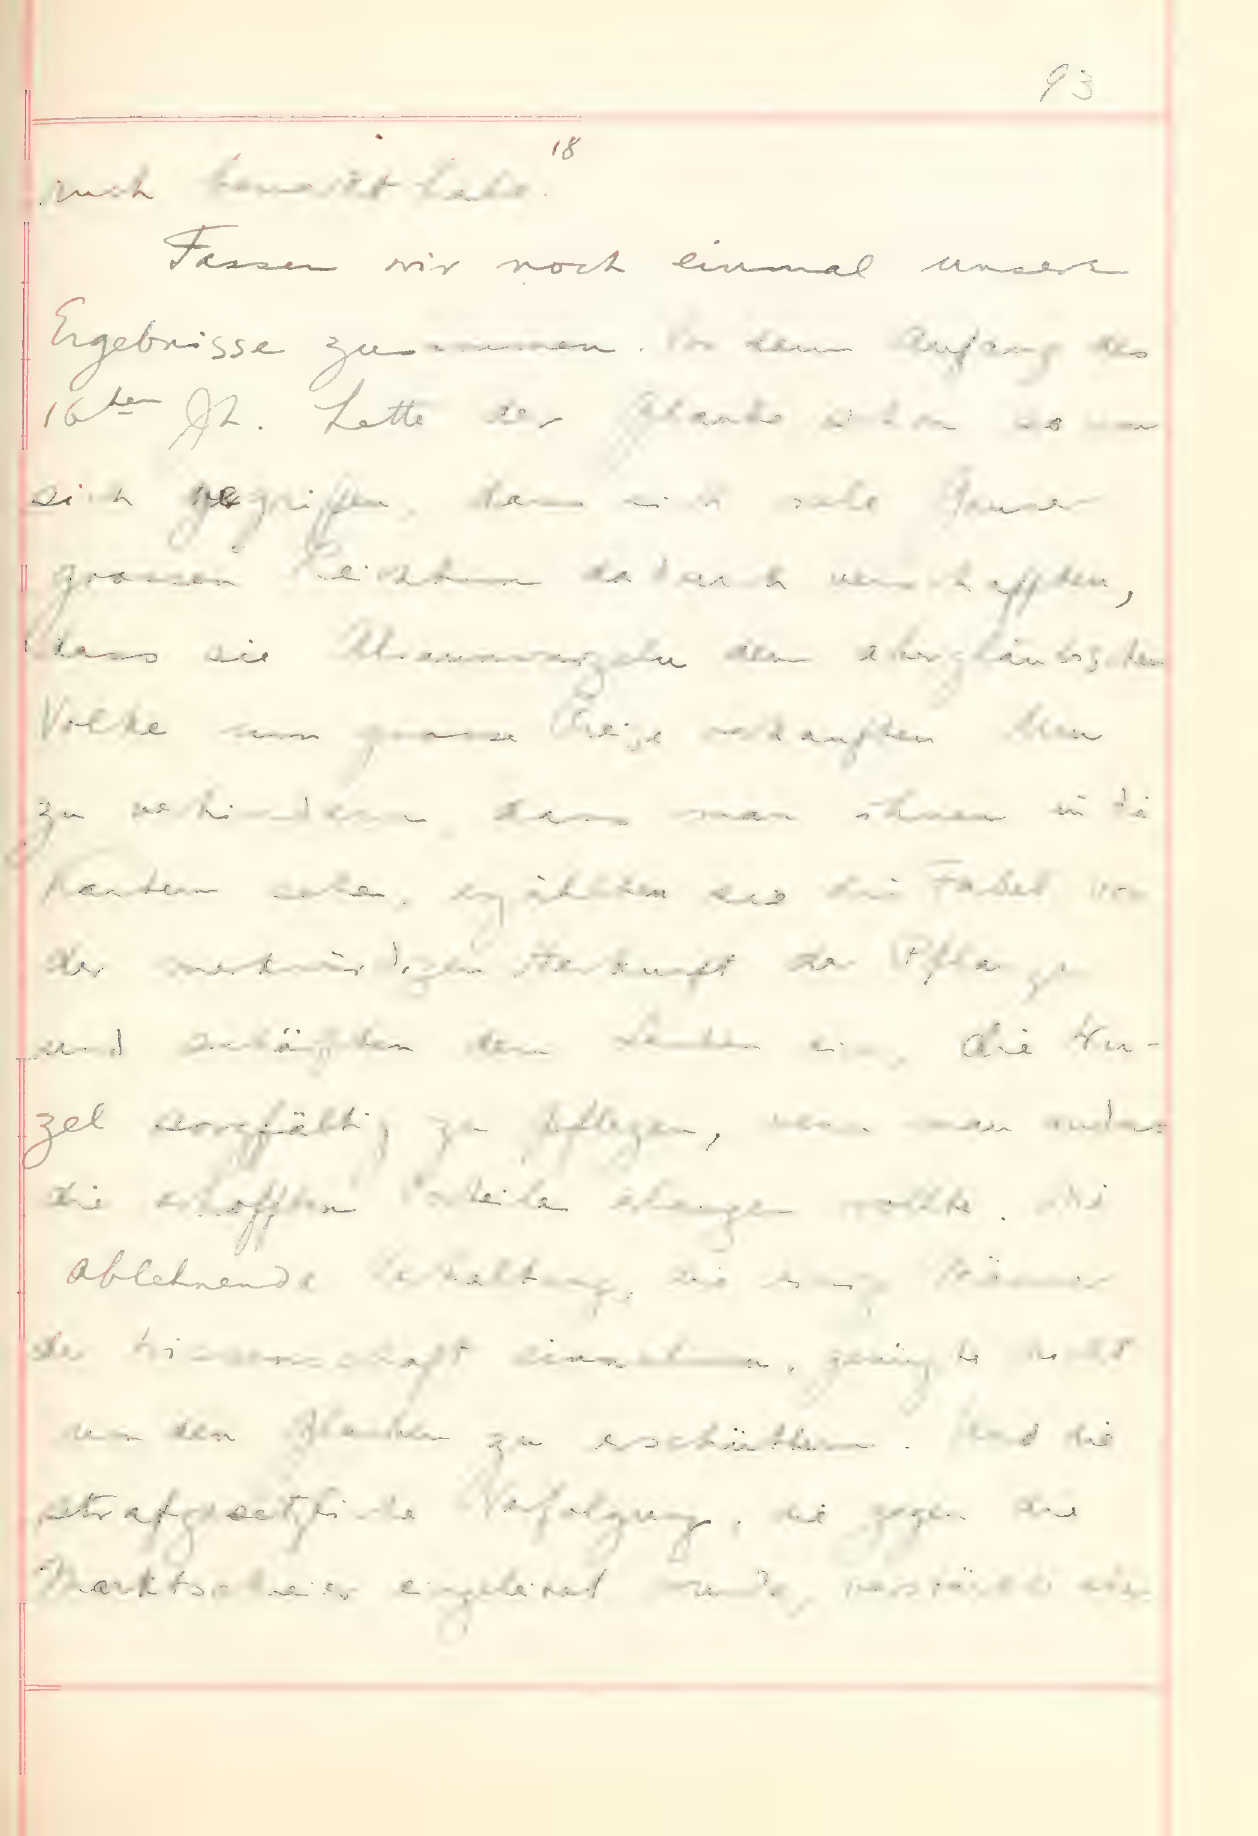 93
noch bemerkt habe.18
Fassen wir noch einmal unsere
Ergebnisse zusammen. Vor dem Anfang des
16ten Jh. hatte der Glaube schon so um
sich gegriffen, dass sich viele Gauner
grossen Reichtum dadurch verschafften,
dass sie Alraunwurzeln dem abergläubischen
Volke um grosse Preise verkauften. Um
zu verhindern, dass man ihnen in die
Karten sehe, erzählten sie die Fabel von
der merkwürdigen Herkunft der Pflanze
und schärften den Leuten ein, die Wur-
zel sorgfältig zu pflegen, wenn man anders
die erhofften Vorteile erlangen wollte. Die
ablehnende Haltung, die einige Männer
der Wissenschaft einnahmen, genügte nicht
um den Glauben zu erschüttern. Und die
strafgesetzliche Verfolgung, die gegen die
Marktschreier eingeleitet wurde, verstärkte